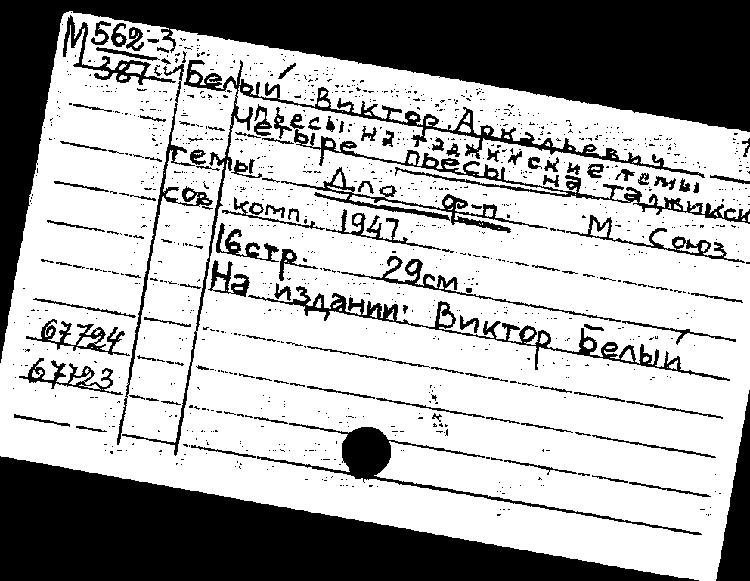 М 562-3
387
Белый Виктор Аркадьевич
Пьесы на таджикские темы
Четыре пьесы на таджикск
темы. Для ф-п. М. Союз
сов. комп., 1947.
16 стр. 29 см.
На издании: Виктор Белый
67724
67723